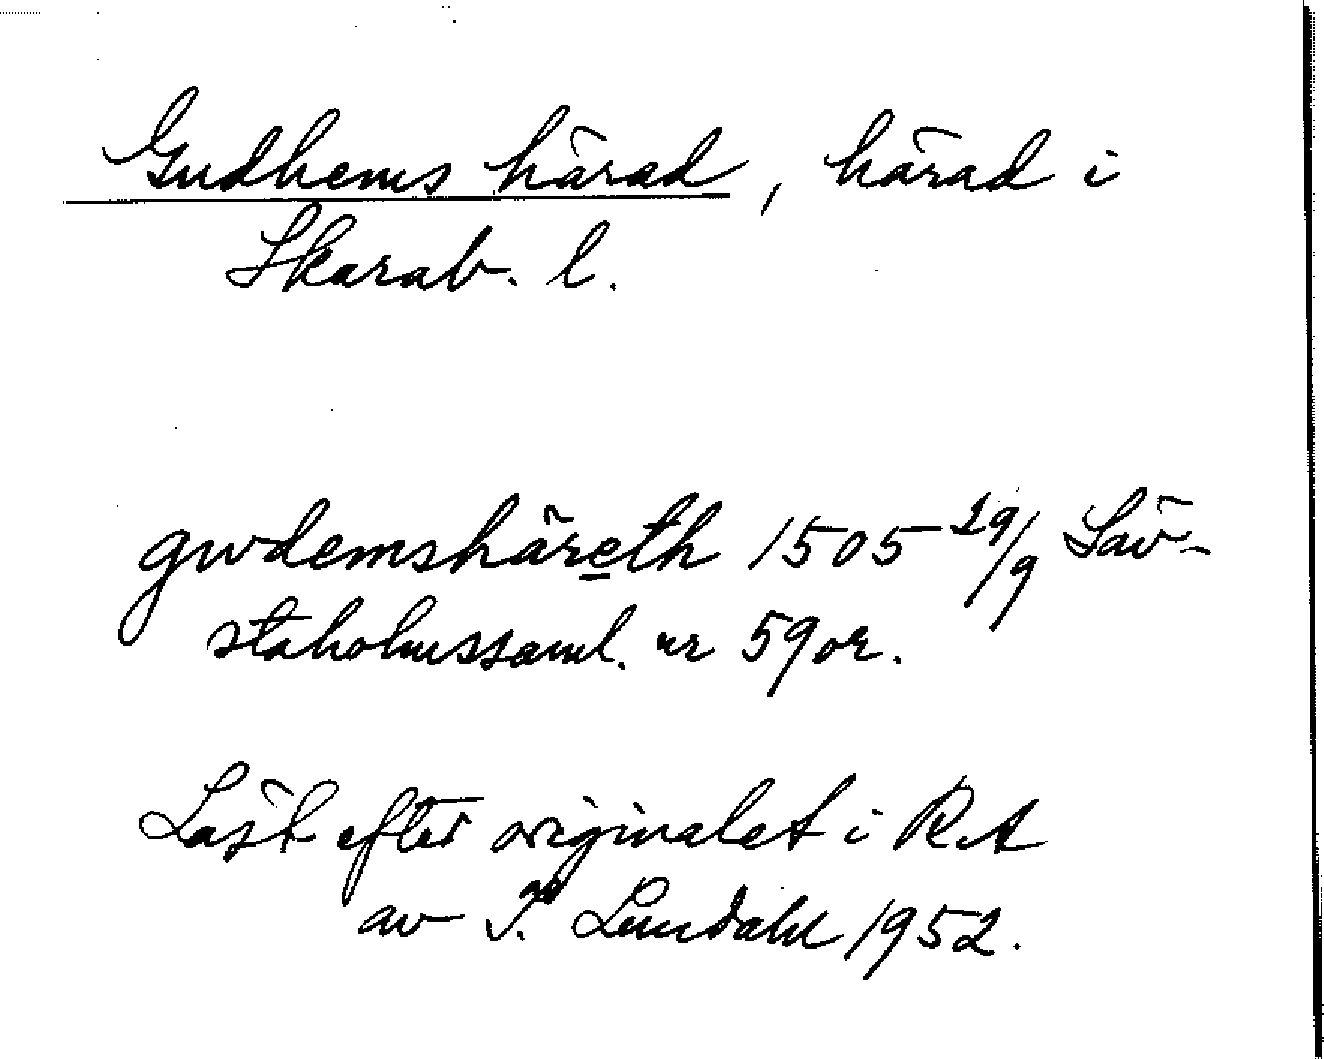 Gudhems härad, härad i
Skarab. l.
gwdemshäreth 1505 29/9 Säv-
staholmssaml. nr 590r.
Läst efter originalet i RA
av I. Lundahl 1952.